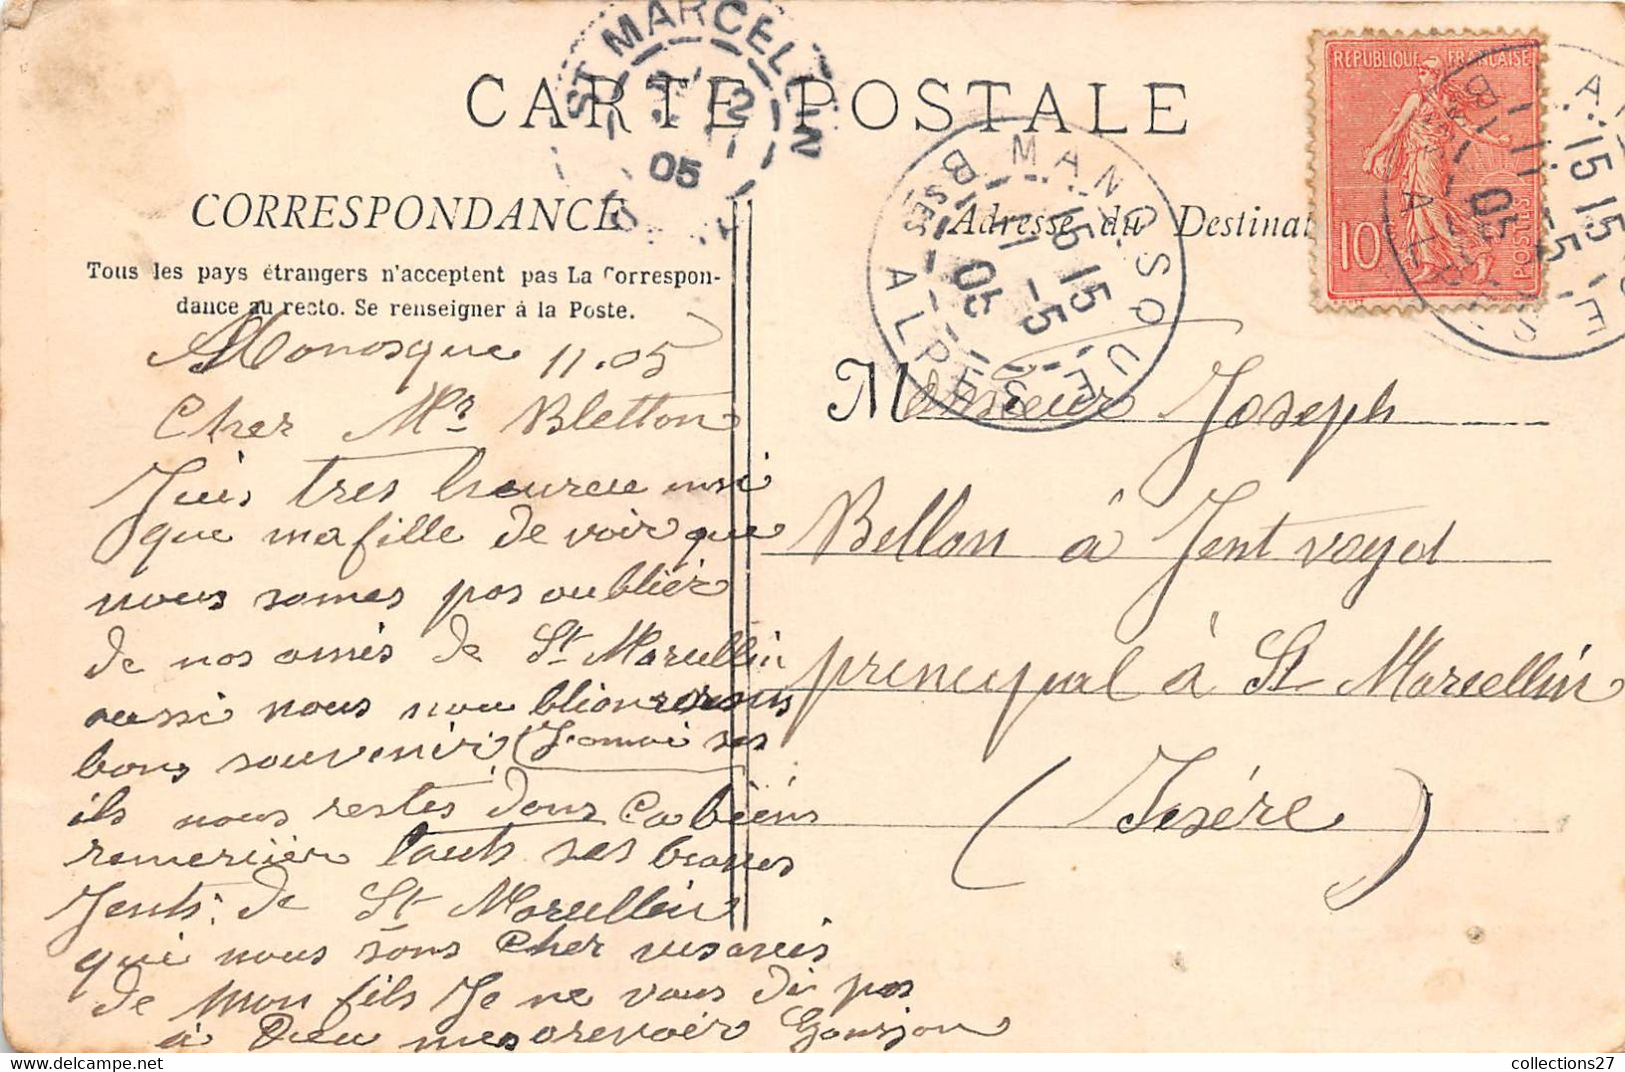 CARTE POSTALE
ST MARCELLIN
2
05
CORRESPONDANCE
Tous les pays étrangers n'acceptent pas La Correspon-
dance au recto. Se renseigner à la Poste.
Adresse du Destinat
MANOSQUE
15 15
1 -5
05
Bses ALPES
REPUBLIQUE FRANÇAISE
10
POSTES
15 15
05
Monosque 11.05
Cher Mr Bletton
Juis tres heureu insi
que ma fille de voir que
nous somes pas oublier
de nos amis de St Marcellin
aussi nous nou blionrons
bons souvenir Jomai ses
ils nous restes dons Ca bièins
remercier touts ses braves
Jents de St Marcellin
qui nous sons Cher
de mon fils Je ne vous di pas
à Dieu mes orevoir Gourjon
Monsieur Joseph
Bellon à Jent voyd
principal à St Marcellin
(Jsére)
collections27